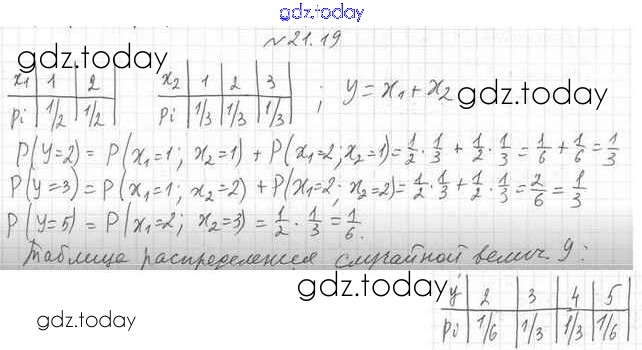 gdz.today
№21.19
gdz.today
x₁ | 1 | 2
pi | 1/2 | 1/2
x₂ | 1 | 2 | 3
pi | 1/3 | 1/3 | 1/3
; y = x₁ + x₂
gdz.today
P(y=2) = P(x₁=1; x₂=1) + P(x₁=2; x₂=1) = 1/2 · 1/3 + 1/2 · 1/3 = 1/6 + 1/6 = 1/3
P(y=3) = P(x₁=1; x₂=2) + P(x₁=2; x₂=2) = 1/2 · 1/3 + 1/2 · 1/3 = 2/6 = 1/3
P(y=5) = P(x₁=2; x₂=3) = 1/2 · 1/3 = 1/6.
Таблица распределения случайной велич. y:
gdz.today
y | 2 | 3 | 4 | 5
pi | 1/6 | 1/3 | 1/3 | 1/6
gdz.today